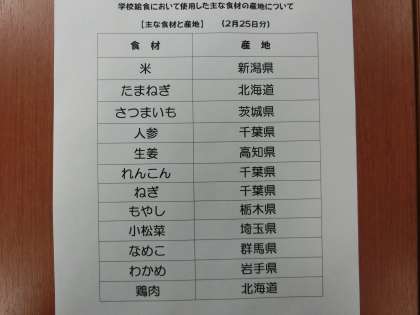 学校給食において使用した主な食材の産地について
【主な食材と産地】 (2月25日分)
食材 産地
米 新潟県
たまねぎ 北海道
さつまいも 茨城県
人参 千葉県
生姜 高知県
れんこん 千葉県
ねぎ 千葉県
もやし 栃木県
小松菜 埼玉県
なめこ 群馬県
わかめ 岩手県
鶏肉 北海道